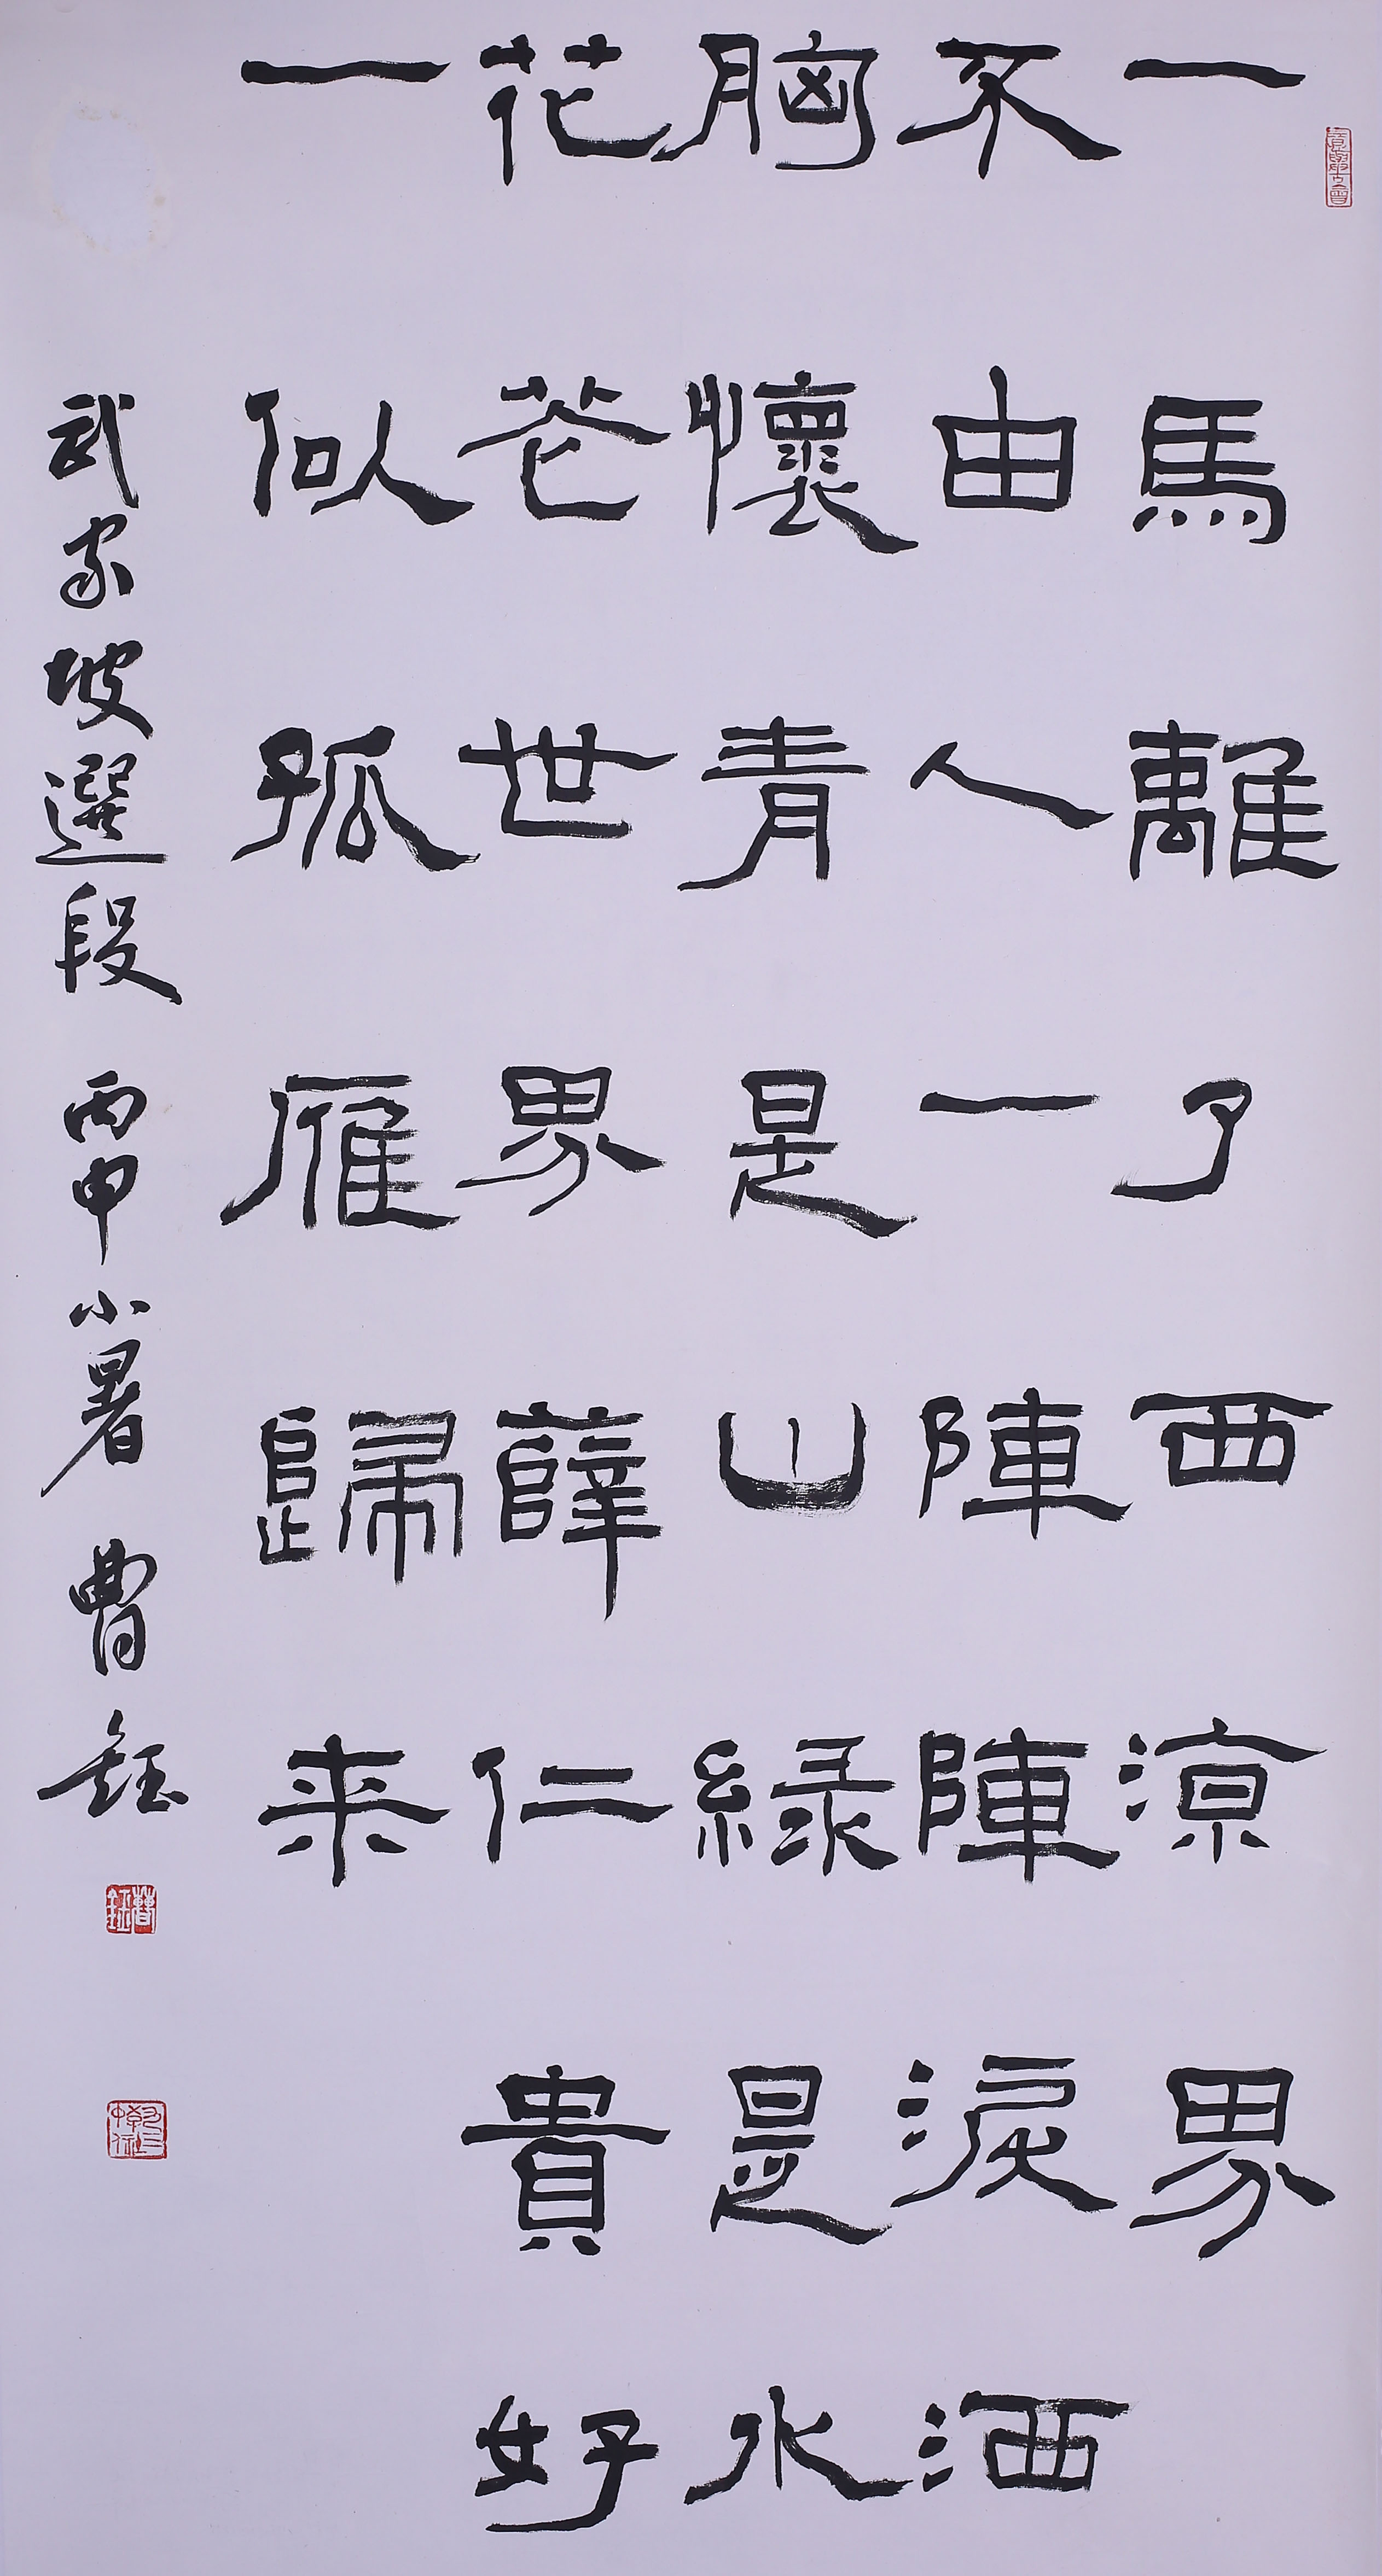 一馬離了西涼界
不由人一陣陣淚洒
胸懷青是山綠是水
花花世界薛仁貴好
一似孤雁歸来
武家坡選段 丙申小暑 曹鈺
曹鈺